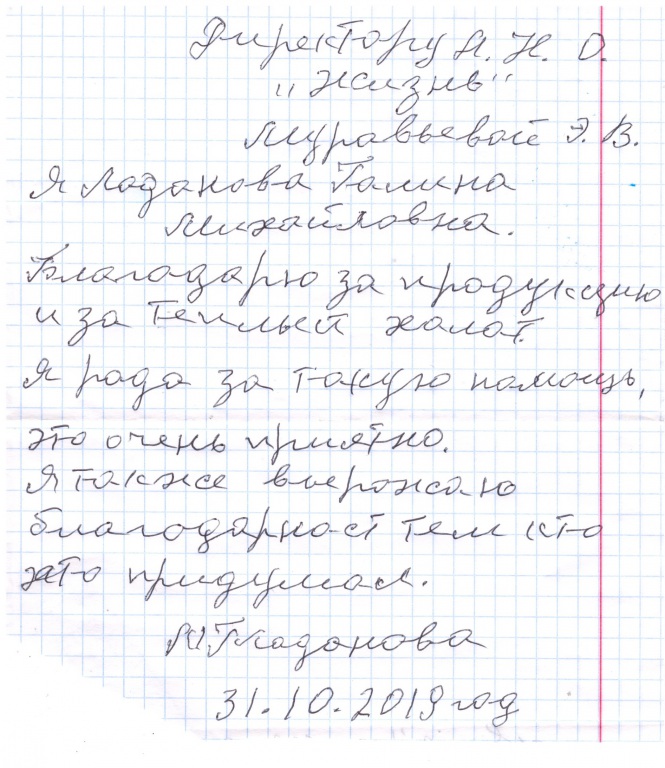 Директору А. Н. О.
"Жизнь"
Муравьевой Э. В.
Я Ладанова Галина
Михайловна.
Благодарю за продукцию
и за теплый халат.
Я рада за такую помощь,
это очень приятно.
Я также выражаю
благодарност тем кто
это придумал.
Ладанова
31.10.2019 год